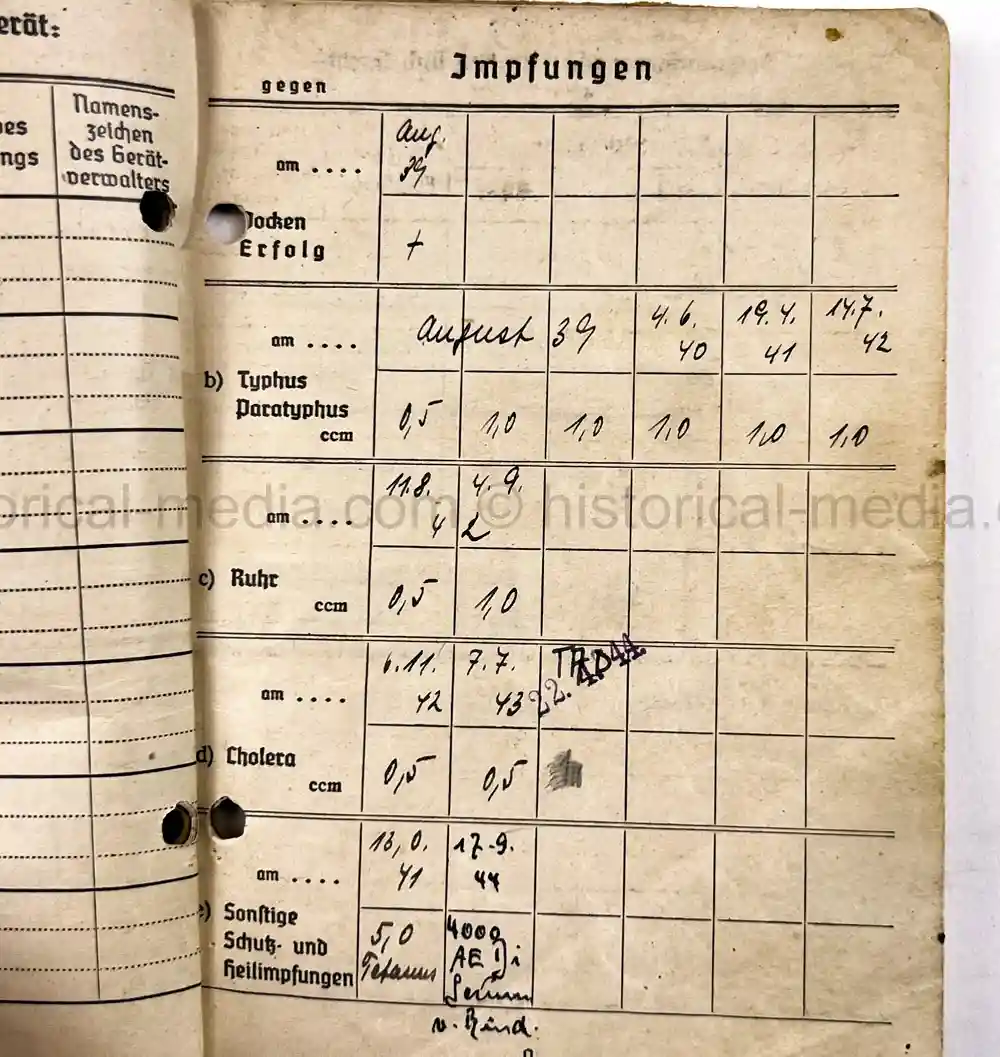 erät:
Namens-
zeichen
des Gerät-
verwalters
es
ngs
Impfungen
gegen
am ....
Aug.
39
Pocken
Erfolg
+
am ....
August 39
4.6.
40
19.4.
41
14.7.
42
b) Typhus
Paratyphus
ccm
0,5 1,0 1,0 1,0 1,0 1,0
am ....
11.8. 4.9.
4 2
c) Ruhr
ccm
0,5 1,0
am ....
6.11.
42
7.7.
43
22. 4. 44
d) Cholera
ccm
0,5 0,5
am ....
41
17.9.
44
e) Sonstige
Schutz- und
Heilimpfungen
5,0
Tetanus
4000
AE
Serum
v. Rind.
orical-media.com © historical-media.